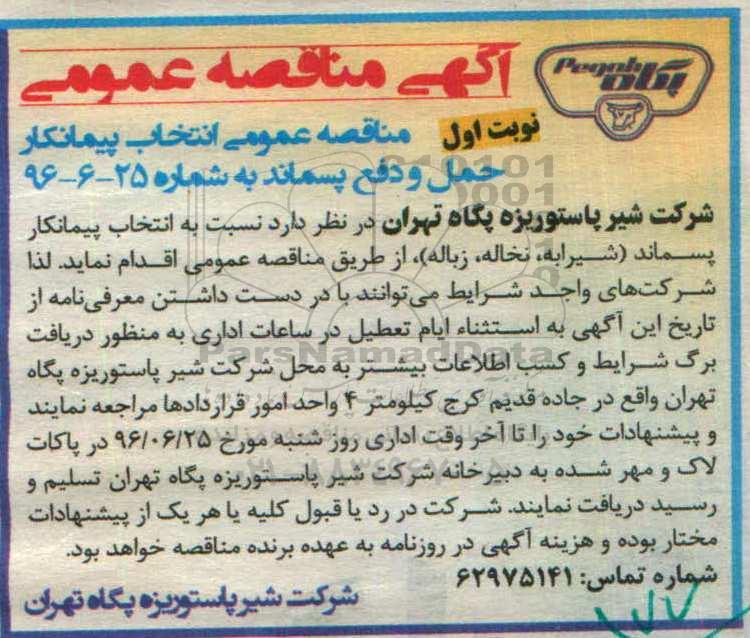 آگهی مناقصه عمومی
Pegah
پگاه
نوبت اول
مناقصه عمومی انتخاب پیمانکار
حمل و دفع پسماند به شماره ۲۵-۶-۹۶
شرکت شیر پاستوریزه پگاه تهران در نظر دارد نسبت به انتخاب پیمانکار
پسماند (شیرابه، نخاله، زباله)، از طریق مناقصه عمومی اقدام نماید. لذا
شرکت‌های واجد شرایط می‌توانند با در دست داشتن معرفی‌نامه از
تاریخ این آگهی به استثناء ایام تعطیل در ساعات اداری به منظور دریافت
برگ شرایط و کسب اطلاعات بیشتر به محل شرکت شیر پاستوریزه پگاه
تهران واقع در جاده قدیم کرج کیلومتر ۴ واحد امور قراردادها مراجعه نمایند
و پیشنهادات خود را تا آخر وقت اداری روز شنبه مورخ ۹۶/۰۶/۲۵ در پاکات
لاک و مهر شده به دبیرخانه شرکت شیر پاستوریزه پگاه تهران تسلیم و
رسید دریافت نمایند. شرکت در رد یا قبول کلیه یا هر یک از پیشنهادات
مختار بوده و هزینه آگهی در روزنامه به عهده برنده مناقصه خواهد بود.
شماره تماس: ۶۲۹۷۵۱۴۱
شرکت شیر پاستوریزه پگاه تهران
ParsNamadData